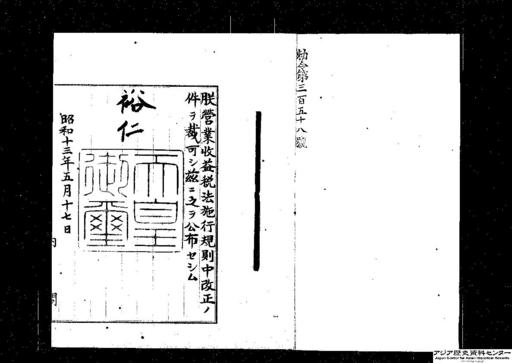 勅令第三百五十八號
朕營業收益稅法施行規則中改正ノ
件ヲ裁可シ茲ニ之ヲ公布セシム
裕仁
天皇
御璽
昭和十三年五月十七日
内閣
アジア歴史資料センター
Japan Center for Asian Historical Records